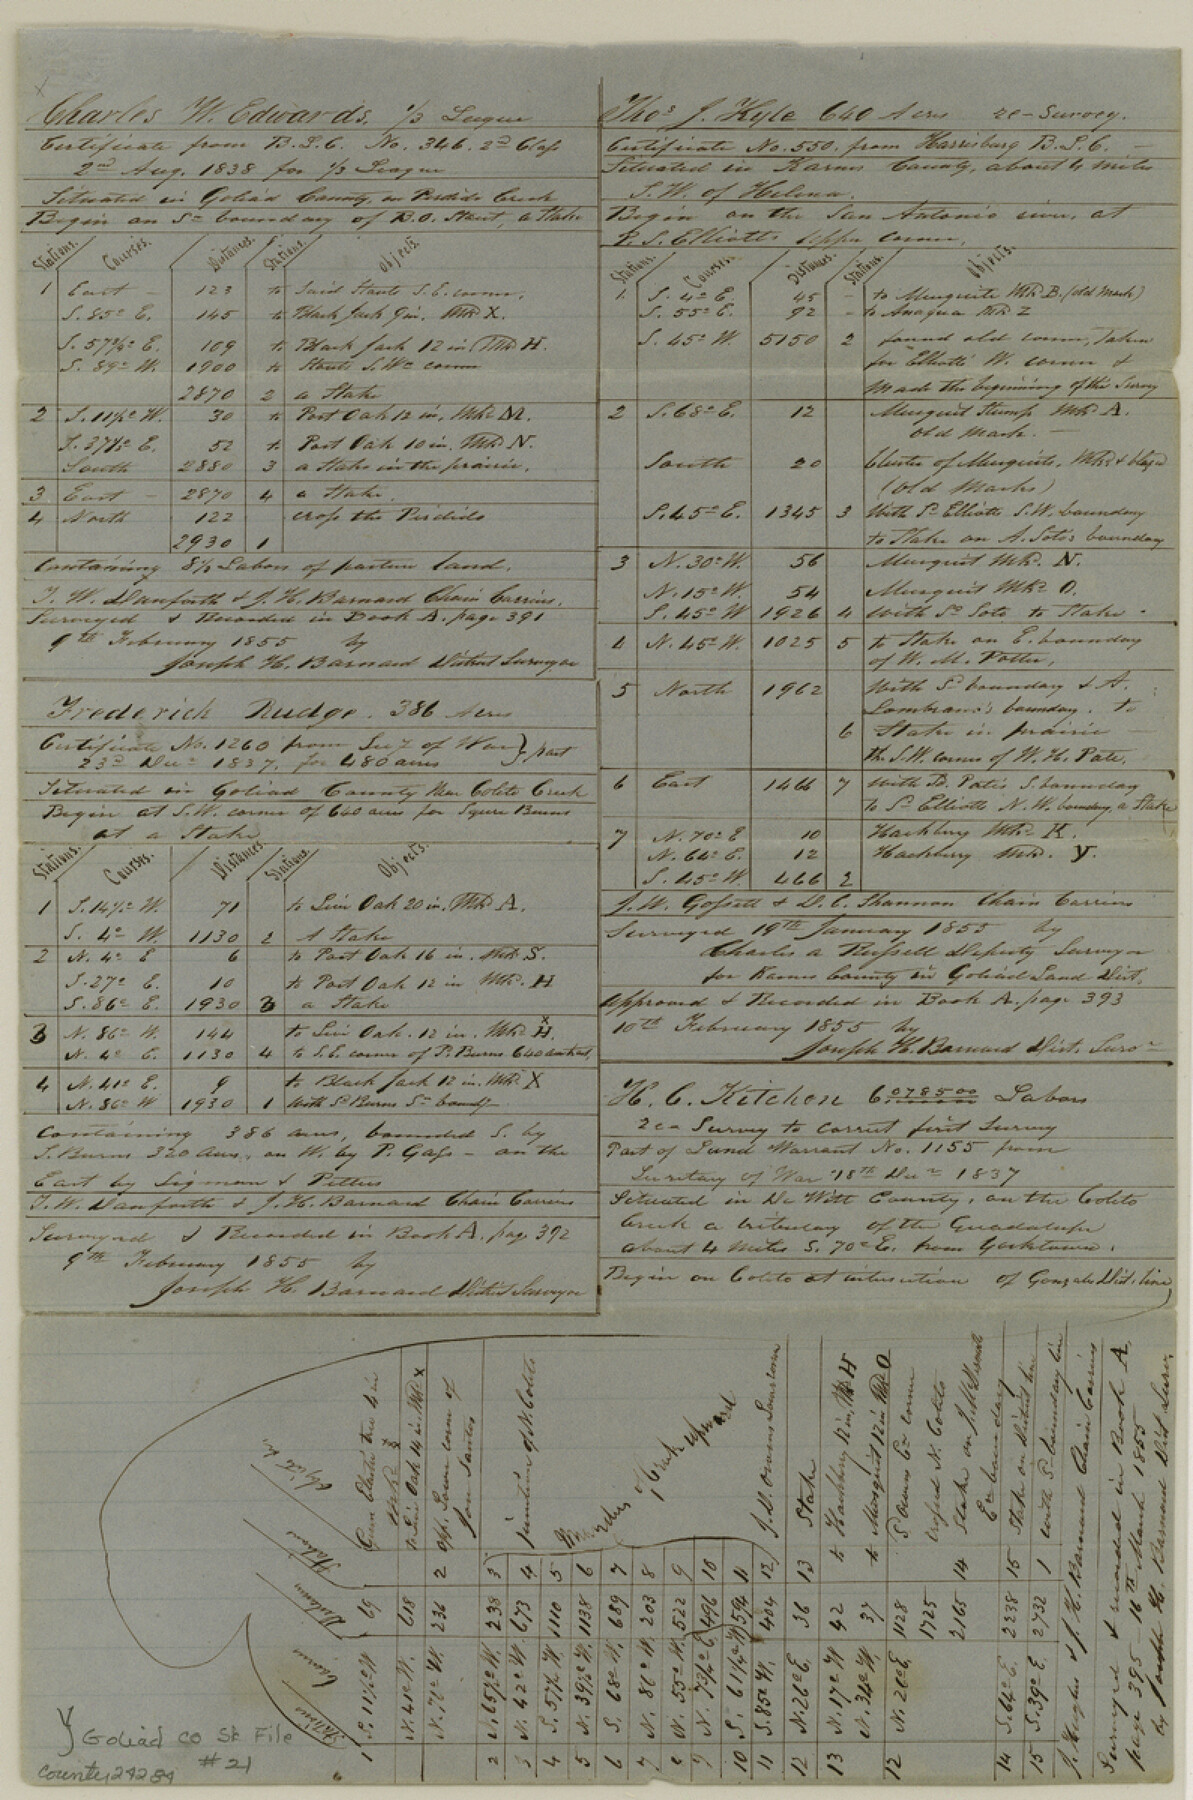 Charles W. Edwards. 1/3 League
Certificate from B.L.C. No. 346. 2nd Class
2nd Aug. 1838 for 1/3 League
Situated in Goliad County, on Perdido Creek
Begin on Sn boundary of B.O. Stout, a Stake
Stations. Courses. Distances. Stations. Objects.
1 East 123 to Said Stouts S.E. corner.
S. 85° E. 145 to Black Jack 9 in. Mkd X.
S. 57¾° E. 109 to Black Jack 12 in Mkd H.
S. 89° W. 1900 to Stouts S.W. corner
2870 2 a Stake
2 S. 11½° W. 30 to Post Oak 12 in. Mkd M.
S. 37½° E. 52 to Post Oak 10 in. Mkd N.
South 2880 3 a Stake in the prairie.
3 East 2870 4 a Stake.
4 North 122 cross the Perdido
2930 1
Containing 8⅓ Labors of pasture land.
T. W. Danforth & J. H. Barnard Chain Carriers.
Surveyed & Recorded in Book A. page 391
9th February 1855 by
Joseph H. Barnard District Surveyor
Frederick Rudge. 386 Acres
Certificate No. 1260 from Secy of War } part
23rd Decr 1837. for 480 acres
Situated in Goliad County Near Coleto Creek
Begin at S.W. corner of 640 acres for Squire Burns
at a Stake
Stations. Courses. Distances. Stations. Objects.
1 S. 14½° W. 71 to Live Oak 20 in. Mkd A.
S. 4° W. 1130 2 A Stake
2 N. 4° E 6 to Post Oak 16 in. Mkd S.
S. 27° E. 10 to Post Oak 12 in Mkd. H
S. 86° E. 1930 3 a Stake
3 N. 86° W. 144 to Live Oak. 12 in. Mkd H.
N. 4° E. 1130 4 to S.E. corner of Sd Burns 640 acre tract.
4 N. 41° E. 9 to Black Jack 12 in. Mkd. X
N. 86° W 1930 1 with Sd Burns Sn boundy
Containing 386 acres, bounded S. by
S. Burns 320 Acres, on W. by P. Gass - on the
East by Sigmon & Pettus
T. W. Danforth & J. H. Barnard Chain Carriers
Surveyed & Recorded in Book A. page 392
9th February 1855 by
Joseph H. Barnard District Surveyor
Thos J. Kyle 640 Acres re-Survey.
Certificate No. 550. from Harrisburg B.L.C.
Situated in Karnes County, about 4 miles
S.W. of Helena.
Begin on the San Antonio river, at
P. S. Elliott's upper corner.
Stations. Courses. Distances. Stations. Objects.
1 S. 4° E. 45 - to Musquite Mkd B. (old mark)
S. 55° E. 92 - to Anaqua Mkd Z
S. 45° W. 5150 2 found old corner, taken
for Elliotts W. corner &
made the beginning of this Survey
2 S. 68° E. 12 Musquit Stump Mkd A.
old mark.
South 20 Cluster of Musquits, Mkd & blazed
(old marks)
S. 45° E. 1345 3 With Sd Elliotts S.W. boundary
to Stake on A. Soto's boundary
3 N. 30° W. 56 Musquit Mkd. N.
N. 15° W. 54 Musquit Mkd O.
S. 45° W 1926 4 with Sd Soto to Stake.
4 N. 45° W. 1025 5 to Stake on E. boundary
of W. M. Potter,
5 North 1962 with Sd boundary & A.
Lombrano's boundary. to
6 Stake in prairie
the S.W. corner of W. H. Pate.
6 East 1466 7 with Sd Pates S. boundary
to Sd Elliotts N.W. boundary, a Stake
7 N. 70° E 10 Hackbury Mkd K.
N. 64° E. 12 Hackbury Mkd. Y.
S. 45° W. 466 2
J. W. Gossett & D. C. Shannon Chain Carriers
Surveyed 19th January 1855 by
Charles A Russell Deputy Surveyor
for Karnes County in Goliad Land Dist.
Approved & Recorded in Book A. page 393
10th February 1855 by
Joseph H. Barnard Dist. Survr
H. C. Kitchen 6.078500 Labors
re-Survey to correct first Survey
Part of Land Warrant No. 1155 from
Secretary of War 18th Decr 1837
Situated in De Witt County, on the Coleto
Creek a tributary of the Guadalupe
about 4 miles S. 70° E. from Yorktown.
Begin on Coleto at intersection of Gonzales Dist. line
Stations Courses Distances Stations Objects &c
1 S. 11½° W. 69 Elm tree 4 in
N. 41° W. 618 Live Oak 14 in Mkd X
N. 70° W. 236 2 opp. Lower corner of
Jon Santos
2 N. 65½° W. 238 3
3 N. 42° W. 673 4 Junction of N. Coleto
4 S. 57½° W. 1110 5
5 N. 39½° W. 1138 6
6 S. 68° W. 689 7 Meanders of Creek upward
7 N. 86° W. 203 8
8 N. 55° W. 522 9
9 N. 73¼° E. 496 10
10 S. 61¼° W. 594 11
11 S. 85° W. 404 12 J. D. Owens Lower corner
12 N. 26° E. 36 13 Stake
13 N. 17° W 42 to Hackbury 12 in. Mkd H
N. 34° W. 37 to Musquit 12 in Mkd O
12 N. 26° E. 1128 Sd Owens En corner
1725 crossed N. Coleto
2165 14 Stake on
En boundary
14 S. 64° E. 2238 15 Stake on District line
15 S. 39° E. 2732 1 with Sd boundary line
J. Hughes & J. H. Barnard Chain Carriers
Surveyed & recorded in Book A,
page 395 - 16th March 1855
by Joseph H. Barnard Dist Survr.
Goliad Co Sk File
#21
County 24284